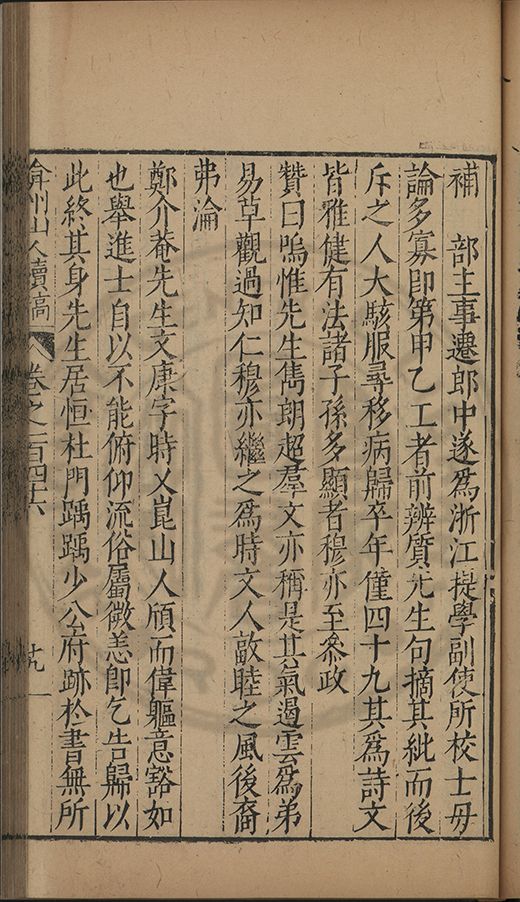 補　部主事遷郎中遂爲浙江提學副使所校士毋
論多寡即第甲乙工者前辨質先生句摘其紕而後
斥之人大駭服尋移病歸卒年僅四十九其爲詩文
皆雅健有法諸子孫多顯者穆亦至叅政
贊曰嗚惟先生雋朗超羣文亦稱是其氣遏雲爲弟
易草觀過知仁穆亦繼之爲時文人敵睦之風後裔
弗淪
鄭介菴先生文康字時乂崑山人頎而偉軀意豁如
也舉進士自以不能俯仰流俗屬微恙即乞告歸以
此終其身先生居恒杜門踽踽少公府跡於書無所
弇州山人續稿　卷之一百四十六　十九